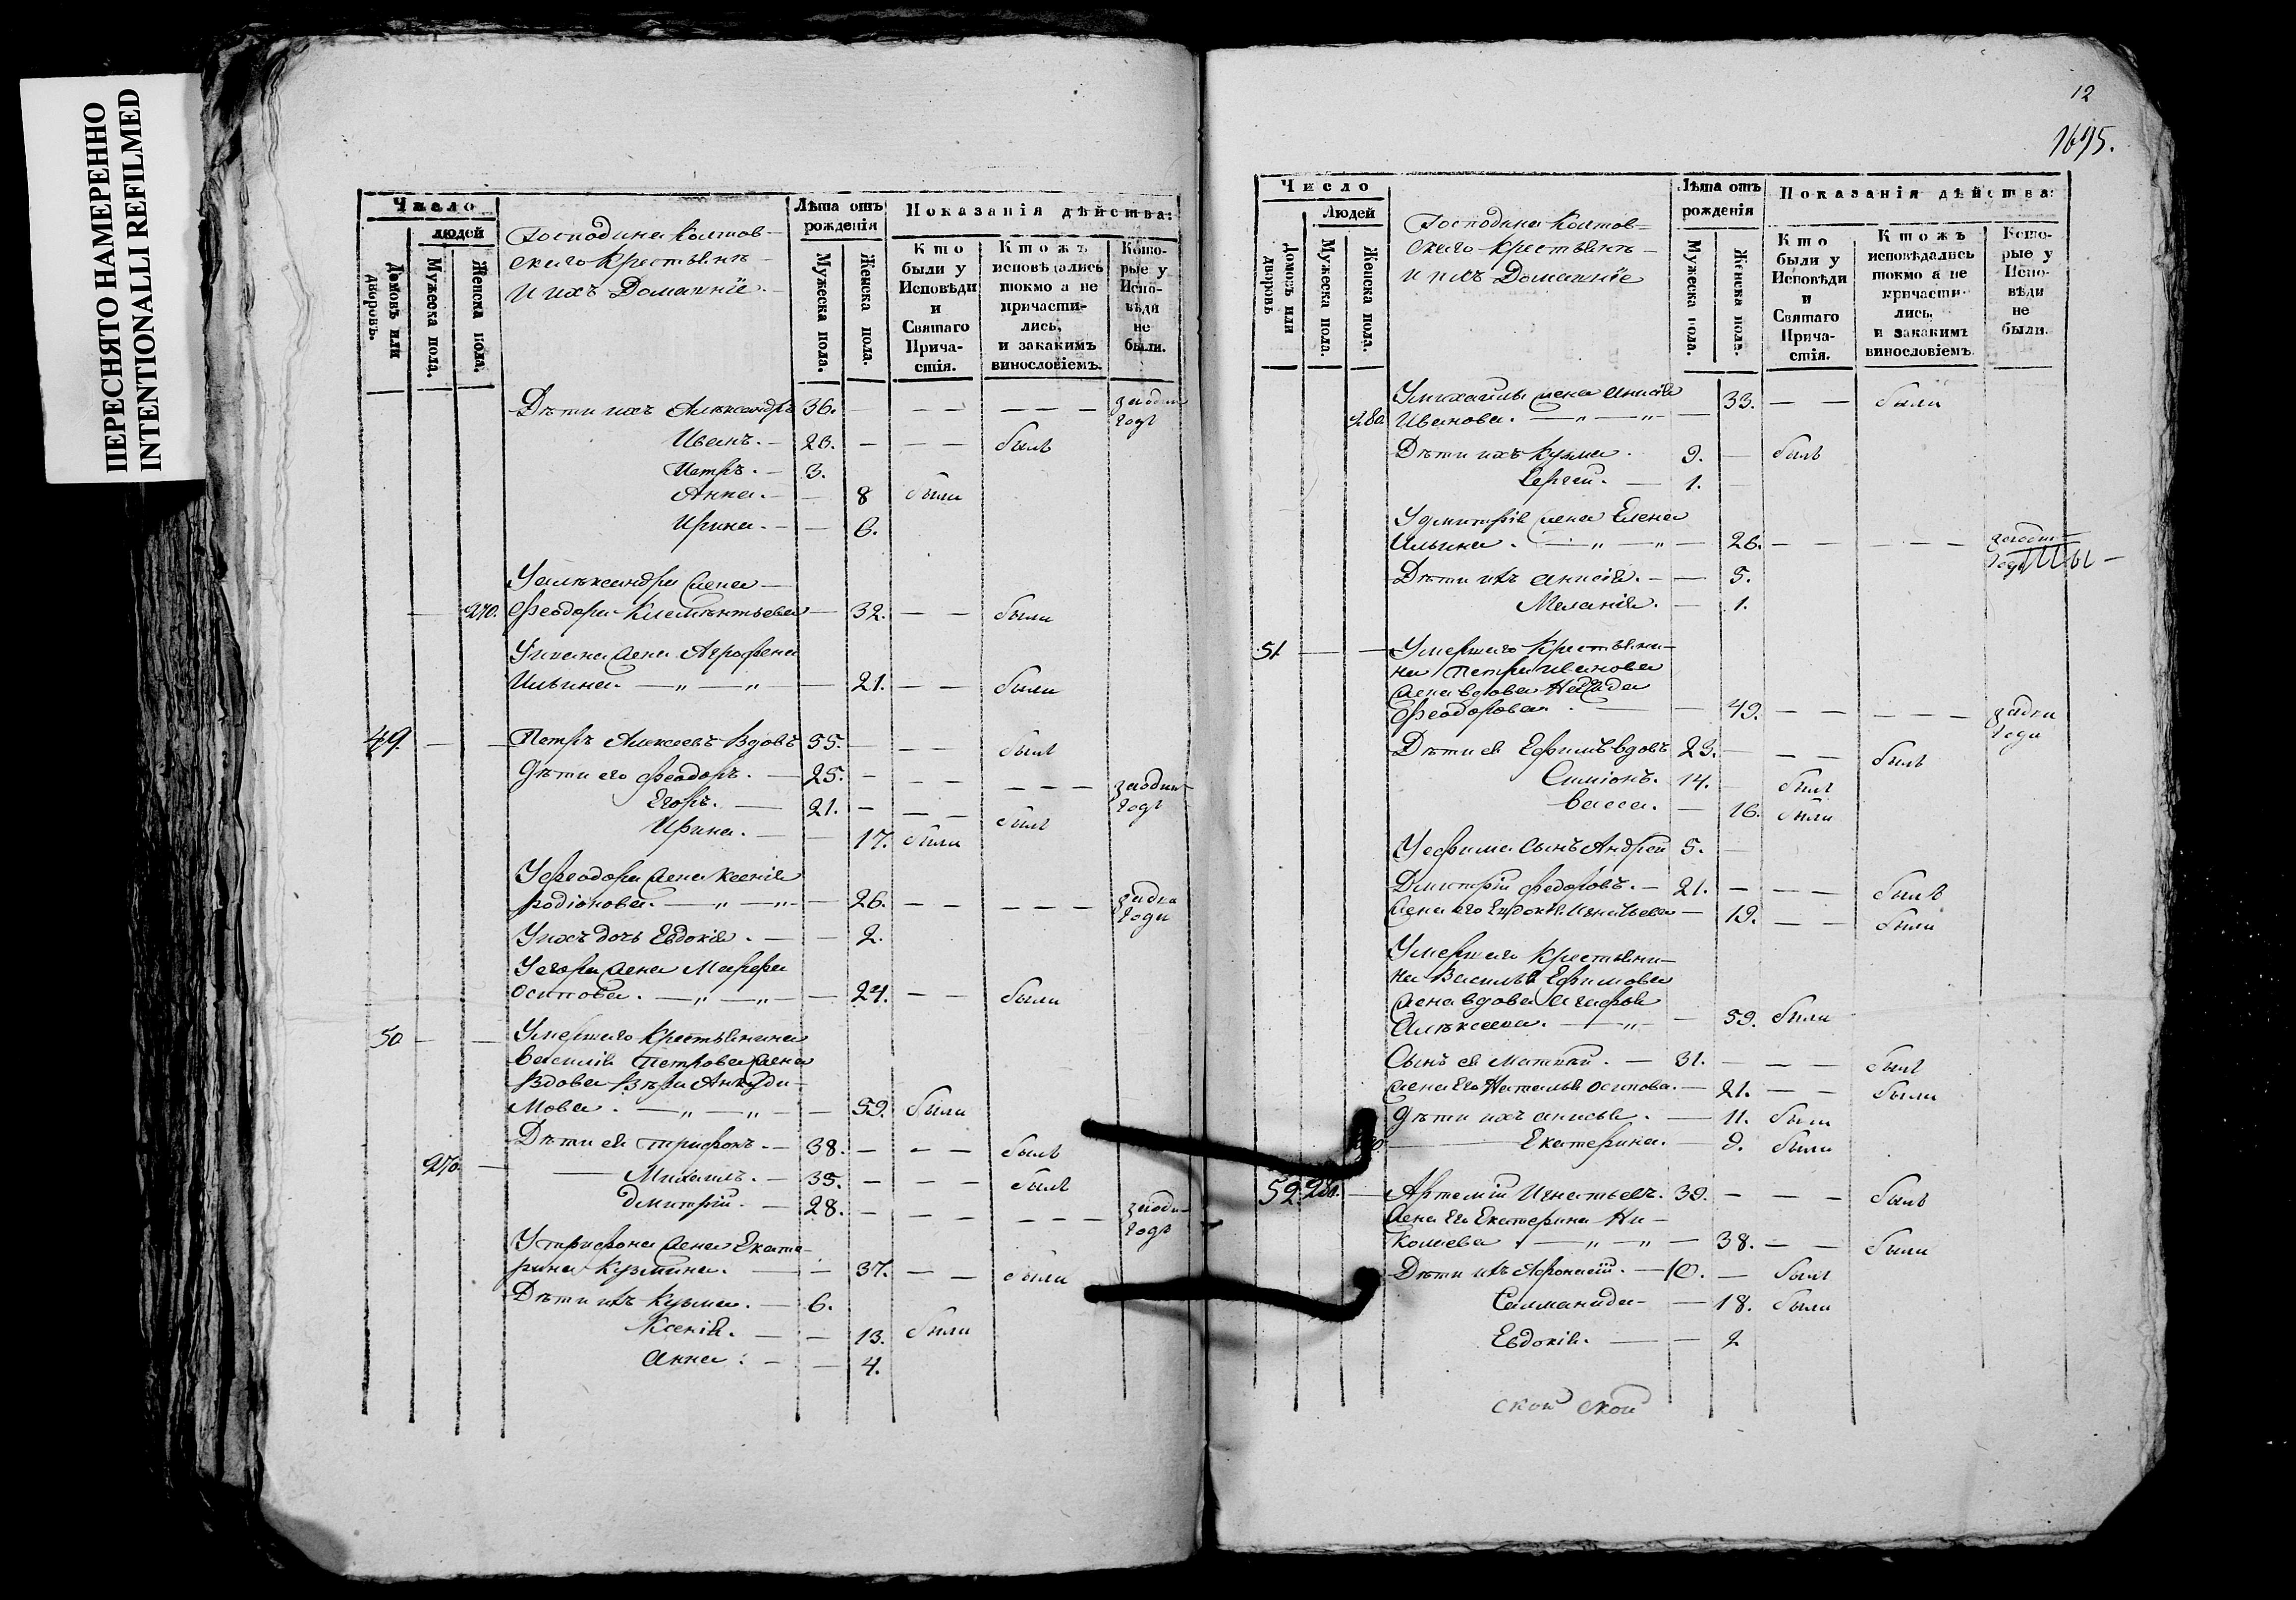 ПЕРЕСНЯТО НАМЕРЕННО
INTENTIONALLI REFILMED
Число
людей
Домовъ или дворовъ.
Мужеска пола.
Женска пола.
Господина Колтов-
скаго крестьянъ
и ихъ Домашніе.
Лѣта отъ рожденія
Мужеска пола.
Женска пола.
Показанія дѣйства:
Кто были у Исповѣди и Святаго Прича-стія.
Ктожъ исповѣдались токмо а не причасти-лись, и закакимъ винословіемъ.
Кото-рые у Испо-вѣди не были.
Дѣти ихъ Александръ 36. — — — — — — заодин
годъ
Иванъ. — 23. — — — былъ
Петръ. — 3.
Анна. — — 8 были
Ирина. — — 6.
У александра жена —
— 270. Феодора Климентьева — 32. — — были
У ивана жена Агрофена
Ильина. — „ — „ — 21. — — были
49. — — Петръ Алексеевъ вдовъ 55. — — — былъ
Дѣти его Феодоръ. — 25. — — — — — — заодин
годъ
Егоръ. — 21. — — — былъ
Ирина. — — 17. были
У Феодора жена Ксенія
Родіонова. — „ — „ — 26. — — — — — задва
года
У ихъ дочь Евдокія. — — 2.
У егора жена Марфа
Осипова. — „ — „ — 24. — — были
50 — — Умершаго крестьянина
Василія Петрова жена
Вдова Вѣра Анкуди-
нова. — „ — „ — — 59. были
Дѣти ея Трифонъ. — 38. — — — былъ
270. — — Михаилъ. — 35. — — — былъ
Дмитрій. — 28. — — — — — — заоди-
годъ
У трифона жена Екате-
рина Кузмина. — — 37. — — были
Дѣти ихъ Кузма. — 6.
Ксенія. — — 13. были
Анна. — — 4.
12
1695.
Число
Людей
Домовъ или дворовъ
Мужеска пола.
Женска пола.
Господина Колтов-
скаго крестьянъ
и ихъ Домашніе
Лѣта отъ рожденія
Мужеска пола.
Женска пола.
Показанія дѣйства:
Кто были у Исповѣди и Святаго Прича-стія.
Ктожъ исповѣдались токмо а не причасти-лись, и закакимъ винословіемъ.
Кото-рые у Испо-вѣди не были.
У михаилы жена Анисія
280. Иванова. — „ — „ — 33. — — были
Дѣти ихъ Кузма. 9. — былъ
Сергей. — 1. —
У дмитрія жена Елена
Ильина. — „ — „ — 26. — — — — —
Дѣти ихъ Анисія. — — 5.
Меланія. — 1.
51 — — Умершаго крестьяни-
на Петра Иванова
жена вдова
Феодорова. — — 49. — — — — — задва
года
Дѣти ея Ефимъ вдовъ 23. — — — былъ
Симіонъ. 14. — былъ
Васса. — 16. были
У ефима сынъ Андрей 5. —
Дмитрій Федоровъ. — 21. — — — былъ
Жена его Евдокія Игнатьева — 19. — — были
Умершаго крестьяни-
на Василья Ефимова
жена вдова Агафья
Алексеева. — „ — 59. были
Сынъ ея Матвѣй. — 31. — — — былъ
жена его Наталья Осипова. — 21. — — были
Дѣти ихъ Анисья. — 11. были
— Екатерина. — 9. были
52. 280. — Артемій Игнатьевъ. 39. — — — былъ
Жена его Екатерина Ни-
колаева. — „ — „ — 38. — — были
Дѣти ихъ Афонасій. — 10. — былъ
Саламанида — — 18. были
Евдокія. — — 2
ской ской